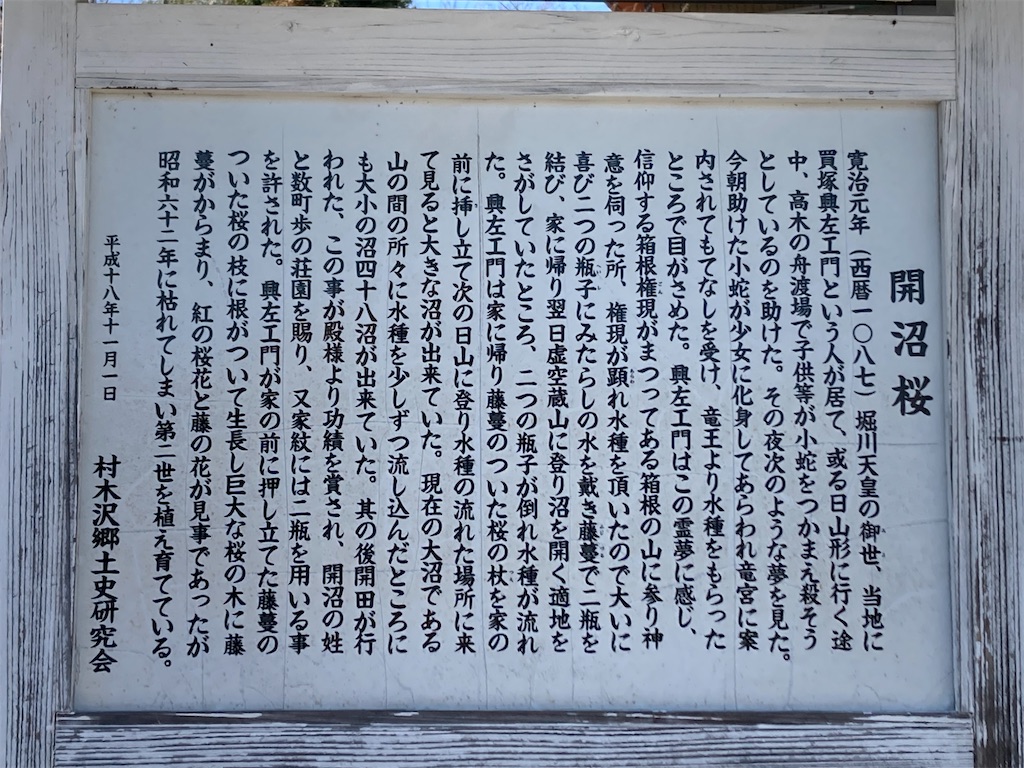 開沼桜
寛治元年（西暦一〇八七）堀川天皇の御世、当地に
買塚興左エ門という人が居て、或る日山形に行く途
中、高木の舟渡場で子供等が小蛇をつかまえ殺そう
としているのを助けた。その夜次のような夢を見た。
今朝助けた小蛇が少女に化身してあらわれ竜宮に案
内されてもてなしを受け、竜王より水種をもらった
ところで目がさめた。興左エ門はこの霊夢に感じ、
信仰する箱根権現がまつってある箱根の山に参り神
意を伺った所、権現が顕れ水種を頂いたので大いに
喜び二つの瓶子にみたらしの水を戴き藤蔓で二瓶を
結び、家に帰り翌日虚空蔵山に登り沼を開く適地を
さがしていたところ、二つの瓶子が倒れ水種が流れ
た。興左エ門は家に帰り藤蔓のついた桜の杖を家の
前に挿し立て次の日山に登り水種の流れた場所に来
て見ると大きな沼が出来ていた。現在の大沼である
山の間の所々に水種を少しずつ流し込んだところに
も大小の沼四十八沼が出来ていた。其の後開田が行
われた、この事が殿様より功績を賞され、開沼の姓
と数町歩の荘園を賜り、又家紋には二瓶を用いる事
を許された。興左エ門が家の前に押し立てた藤蔓の
ついた桜の枝に根がついて生長し巨大な桜の木に藤
蔓がからまり、紅の桜花と藤の花が見事であったが
昭和六十二年に枯れてしまい第二世を植え育てている。
平成十八年十一月一日
村木沢郷土史研究会